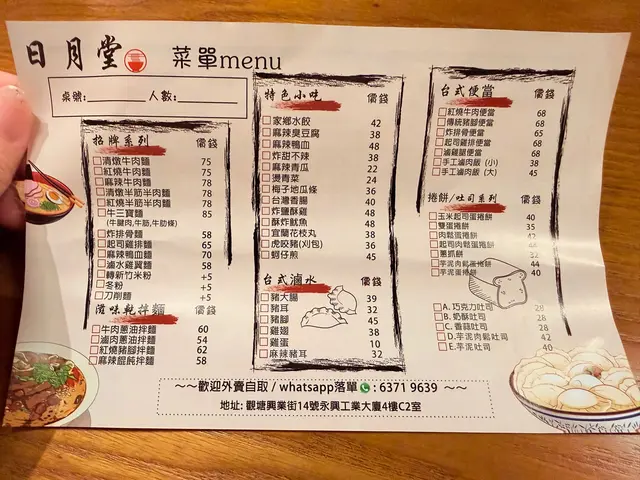 日月堂 菜單menu
桌號:________ 人數:________
招牌系列 價錢
清燉牛肉麵 75
紅燒牛肉麵 75
麻辣牛肉麵 78
清燉半筋半肉麵 78
紅燒半筋半肉麵 78
牛三寶麵 85
(牛腱肉,牛筋,牛肋條)
炸排骨麵 58
起司雞排麵 65
麻辣鴨血麵 70
滷水雞翼麵 58
轉新竹米粉 +5
冬粉 +5
刀削麵 +5
滋味乾拌麵 價錢
牛肉蔥油拌麵 60
滷肉蔥油拌麵 54
紅燒豬腳拌麵 62
麻辣餛飩拌麵 58
特色小吃 價錢
家鄉水餃 42
麻辣臭豆腐 38
麻辣鴨血 48
炸甜不辣 38
麻辣青瓜 22
燙青菜 24
梅子地瓜條 36
台灣香腸 40
炸鹽酥雞 48
酥炸魷魚 48
宜蘭花枝丸 38
虎咬豬(刈包) 36
蚵仔煎 45
台式滷水 價錢
豬大腸 39
豬耳 32
豬腳 45
雞翅 38
雞蛋 10
麻辣豬耳 32
台式便當 價錢
紅燒牛肉便當 68
傳統豬腳便當 68
炸排骨便當 65
起司雞排便當 68
滷雞腿便當 68
手工滷肉飯 (小) 38
手工滷肉飯 (大) 45
捲餅/吐司系列 價錢
玉米起司蛋捲餅 40
雙蛋捲餅 35
肉鬆蛋捲餅 42
起司肉鬆蛋捲餅
蔥抓餅 32
芋泥肉鬆蛋捲餅 44
芋泥蛋捲餅 40
A. 巧克力吐司 28
B. 奶酥吐司 28
C. 香蒜吐司 28
D. 芋泥肉鬆吐司 42
E. 芋泥吐司 40
~~歡迎外賣自取 / whatsapp落單 : 6371 9639 ~~
地址: 觀塘興業街14號永興工業大廈4樓C2室